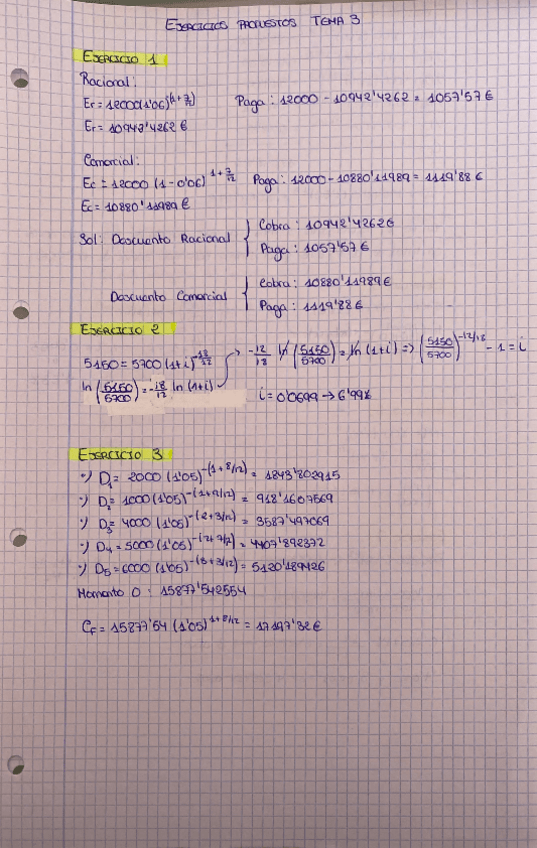 EJERCICIOS PROPUESTOS TEMA 3
EJERCICIO 1
Racional:
Er = 12000(1'06)^-(1+7/12) Paga: 12000 - 10942'4262 = 1057'57 €
Er = 10942'4262 €
Comercial:
Ec = 12000 (1-0'06)^1+7/12 Paga: 12000-10880'11989 = 1119'88 €
Ec = 10880'11989 €
Sol: Descuento Racional { Cobra: 10942'4262€
Paga: 1057'57 €
Descuento Comercial { Cobra: 10880'11989€
Paga: 1119'88 €
EJERCICIO 2
5150 = 5700 (1+i)^-18/12 → -12/18 ln (5150/5700) = ln (1+i) => (5150/5700)^-12/18 - 1 = i
ln (5150/5700) = -18/12 ln (1+i)
i = 0'0699 → 6'99%
EJERCICIO 3
·) D1 = 2000 (1'05)^-(1+8/12) = 1843'802915
·) D2 = 1000 (1'05)^-(1+9/12) = 918'1607569
·) D3 = 4000 (1'05)^-(2+3/12) = 3587'497069
·) D4 = 5000 (1'05)^-(2+7/12) = 4407'892372
·) D5 = 6000 (1'05)^-(3+3/12) = 5120'189426
Momento 0: 15877'542554
CF = 15877'54 (1'05)^1+8/12 = 17197'32 €